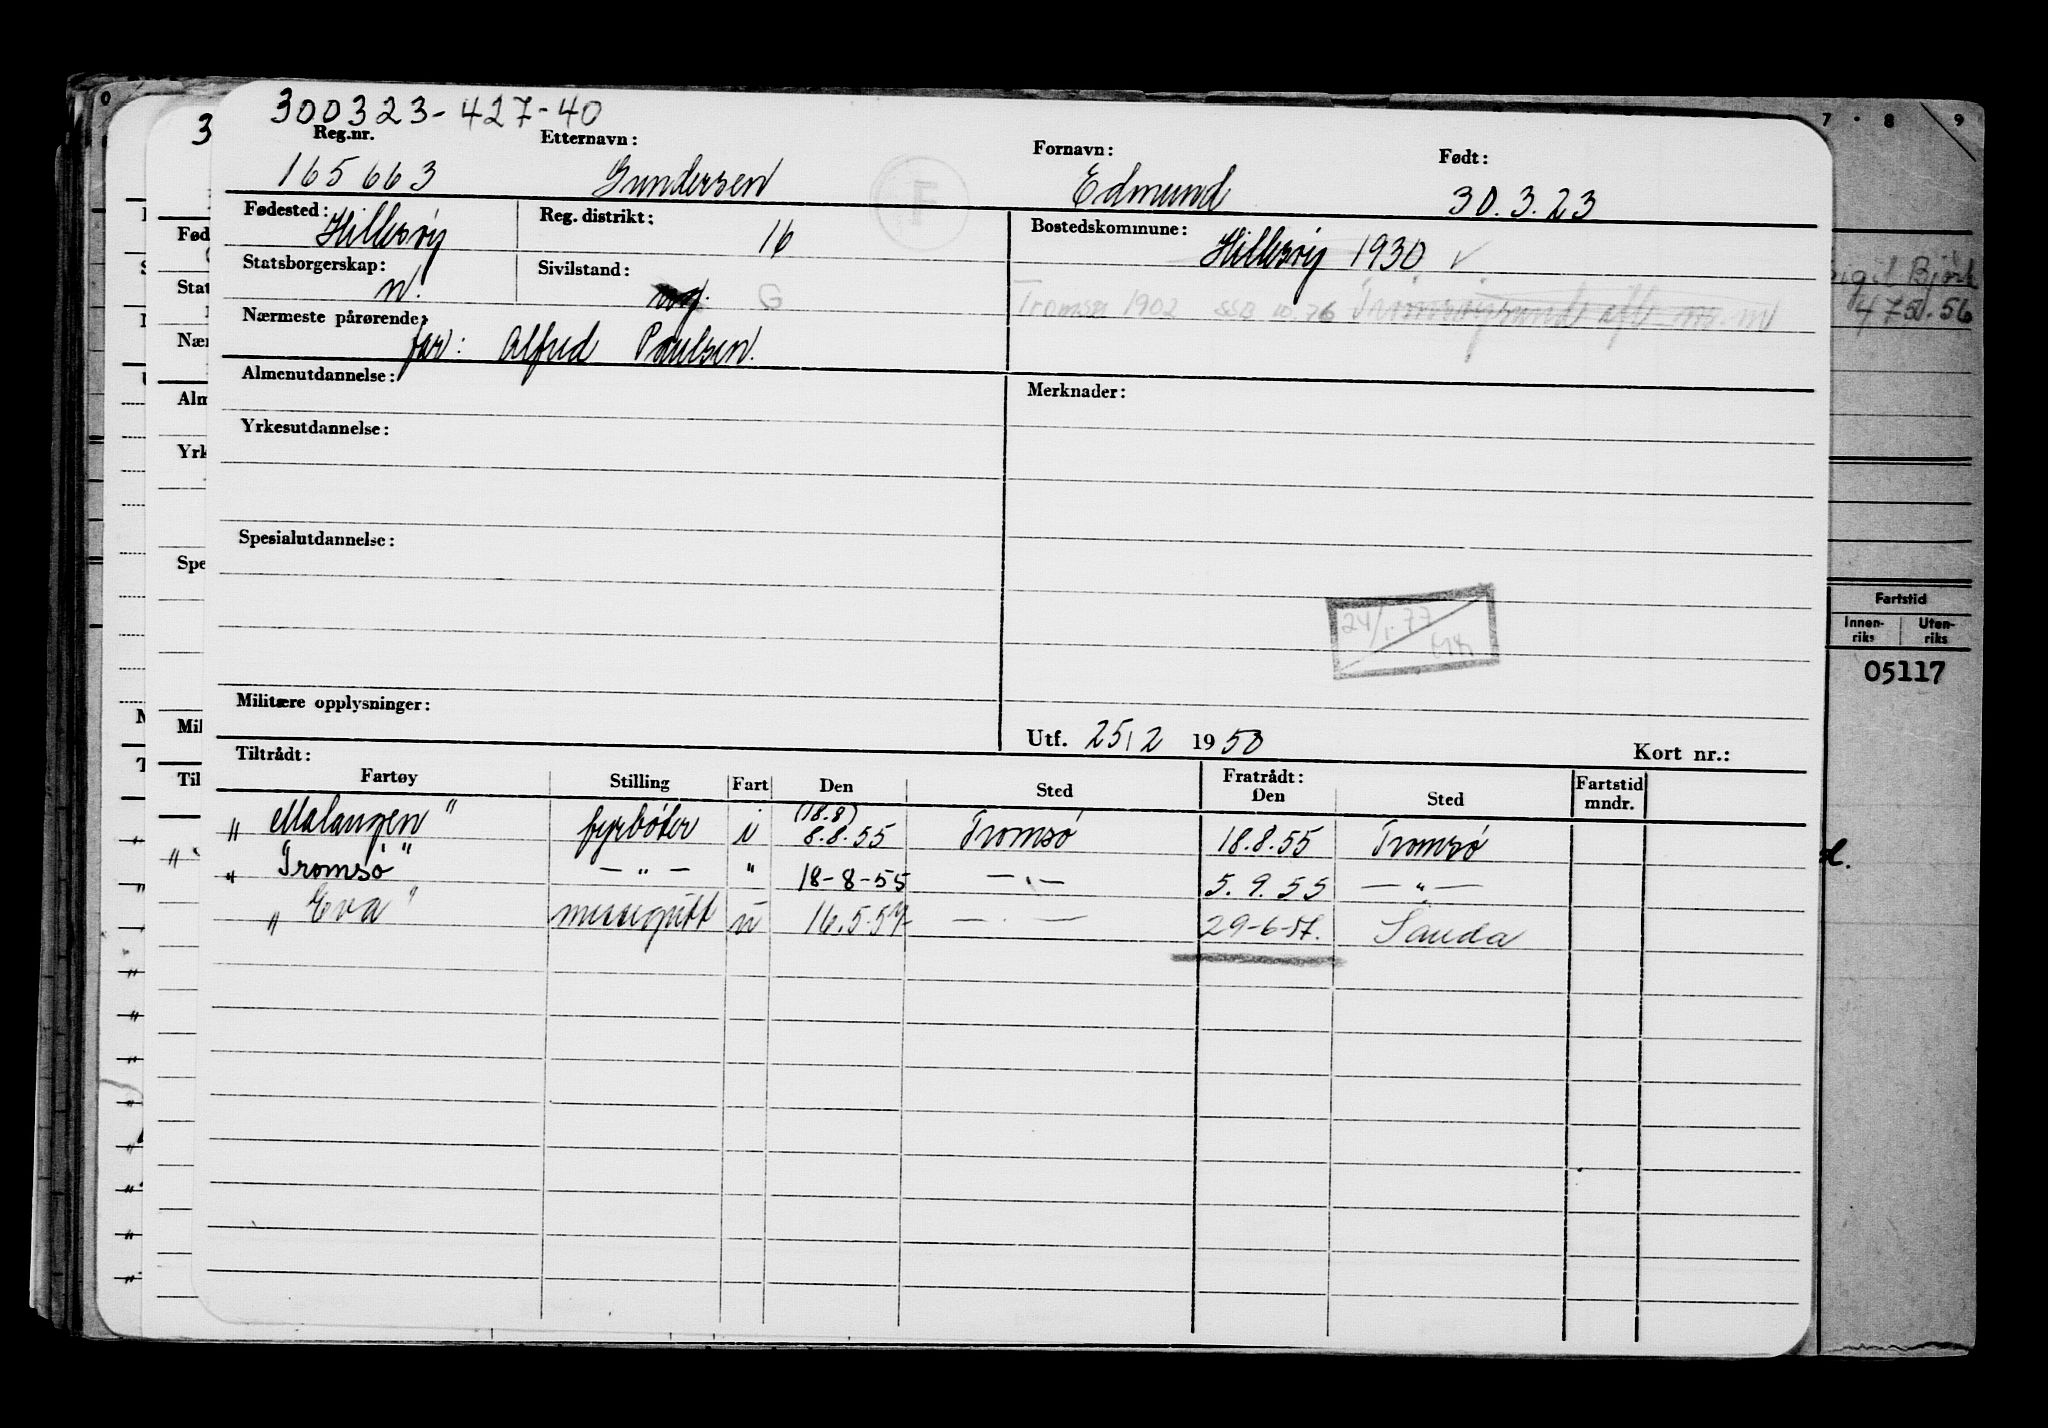 300323-427-40
Reg.nr. Etternavn: Fornavn: Født:
165663 Gundersen Edmund 30.3.23
Fødested: Hillesøy Reg. distrikt: 16 Bostedskommune: Hillesøy 1930 ✓
Statsborgerskap: n. Sivilstand: G
Tromsø 1902 SSB 10.76
Nærmeste pårørende: far: Alfred Paulsen.
Almenutdannelse: Merknader:
Yrkesutdannelse:
Spesialutdannelse:
24/1.77
Militære opplysninger:
Utf. 25/2 1950 Kort nr.:
Tiltrådt: Fratrådt:
Fartøy Stilling Fart Den Sted Den Sted Fartstid mndr.
(18.8)
„ Malangen " fyrbøter i 8.8.55 Tromsø 18.8.55 Tromsø
„ Tromsø " — „ — " 18-8-55 — „ — 5.9.55 — „ —
„ Eva " messegutt u 16.5.57 — „ — 29-6-57. Sauda
3
Fød
Stat
Nær
Alm
Yrk
Spe
Mil
Til
7 · 8 9
475.56
Fartstid
Innen-riks Uten-riks
05117